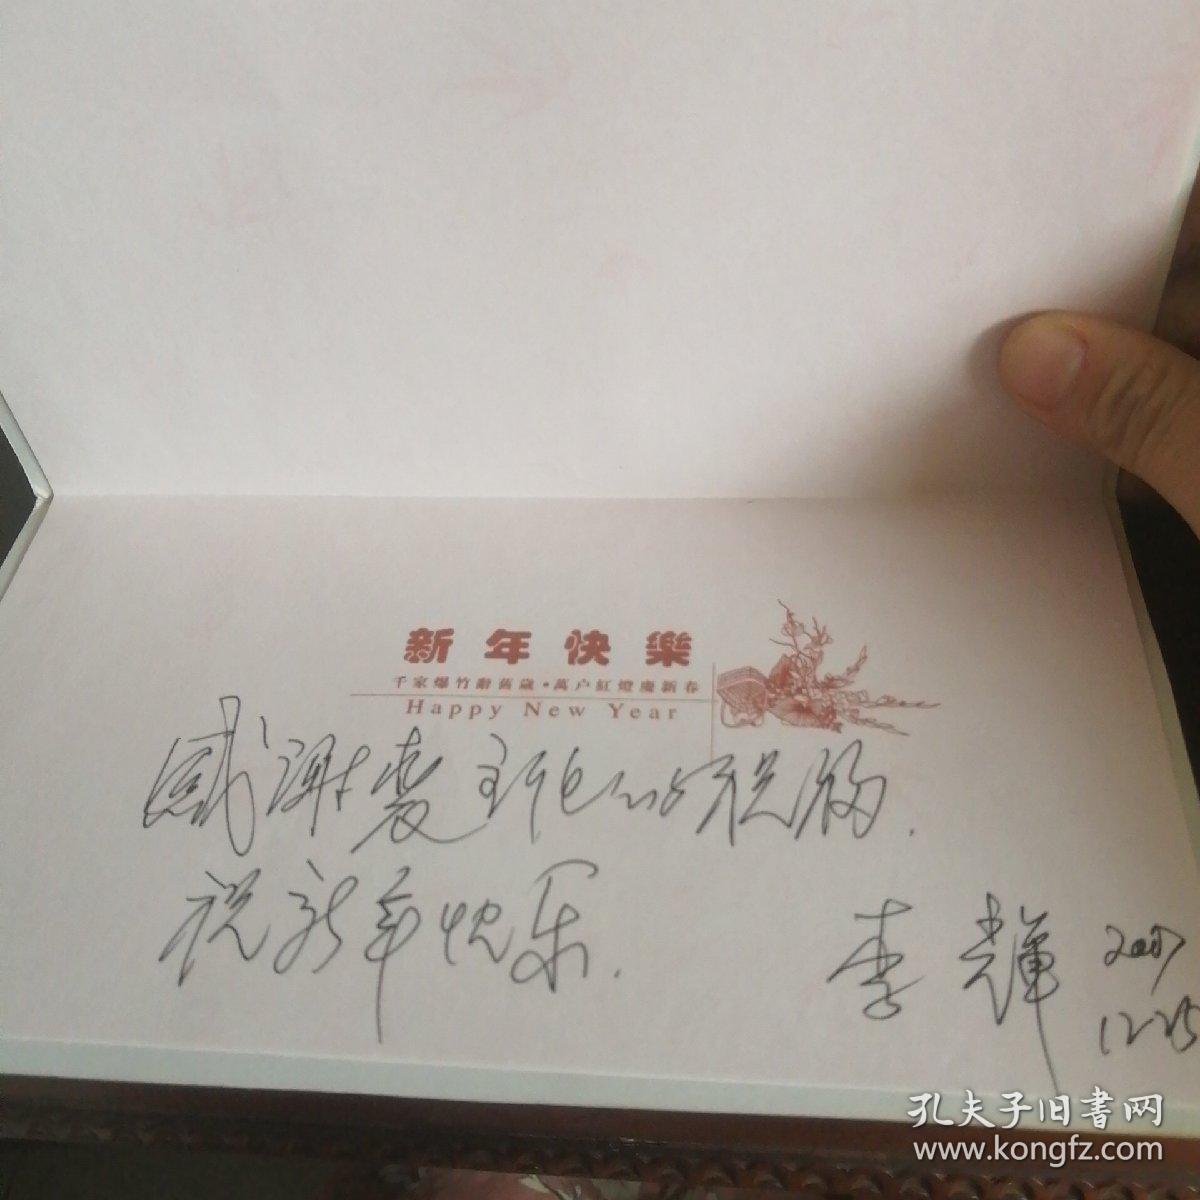 新年快樂
千家爆竹辭舊歲·萬户紅燈慶新春
Happy New Year
感谢 的祝福.
祝新年快乐.
李辉 2007
12.25
孔夫子旧書网
www.kongfz.com